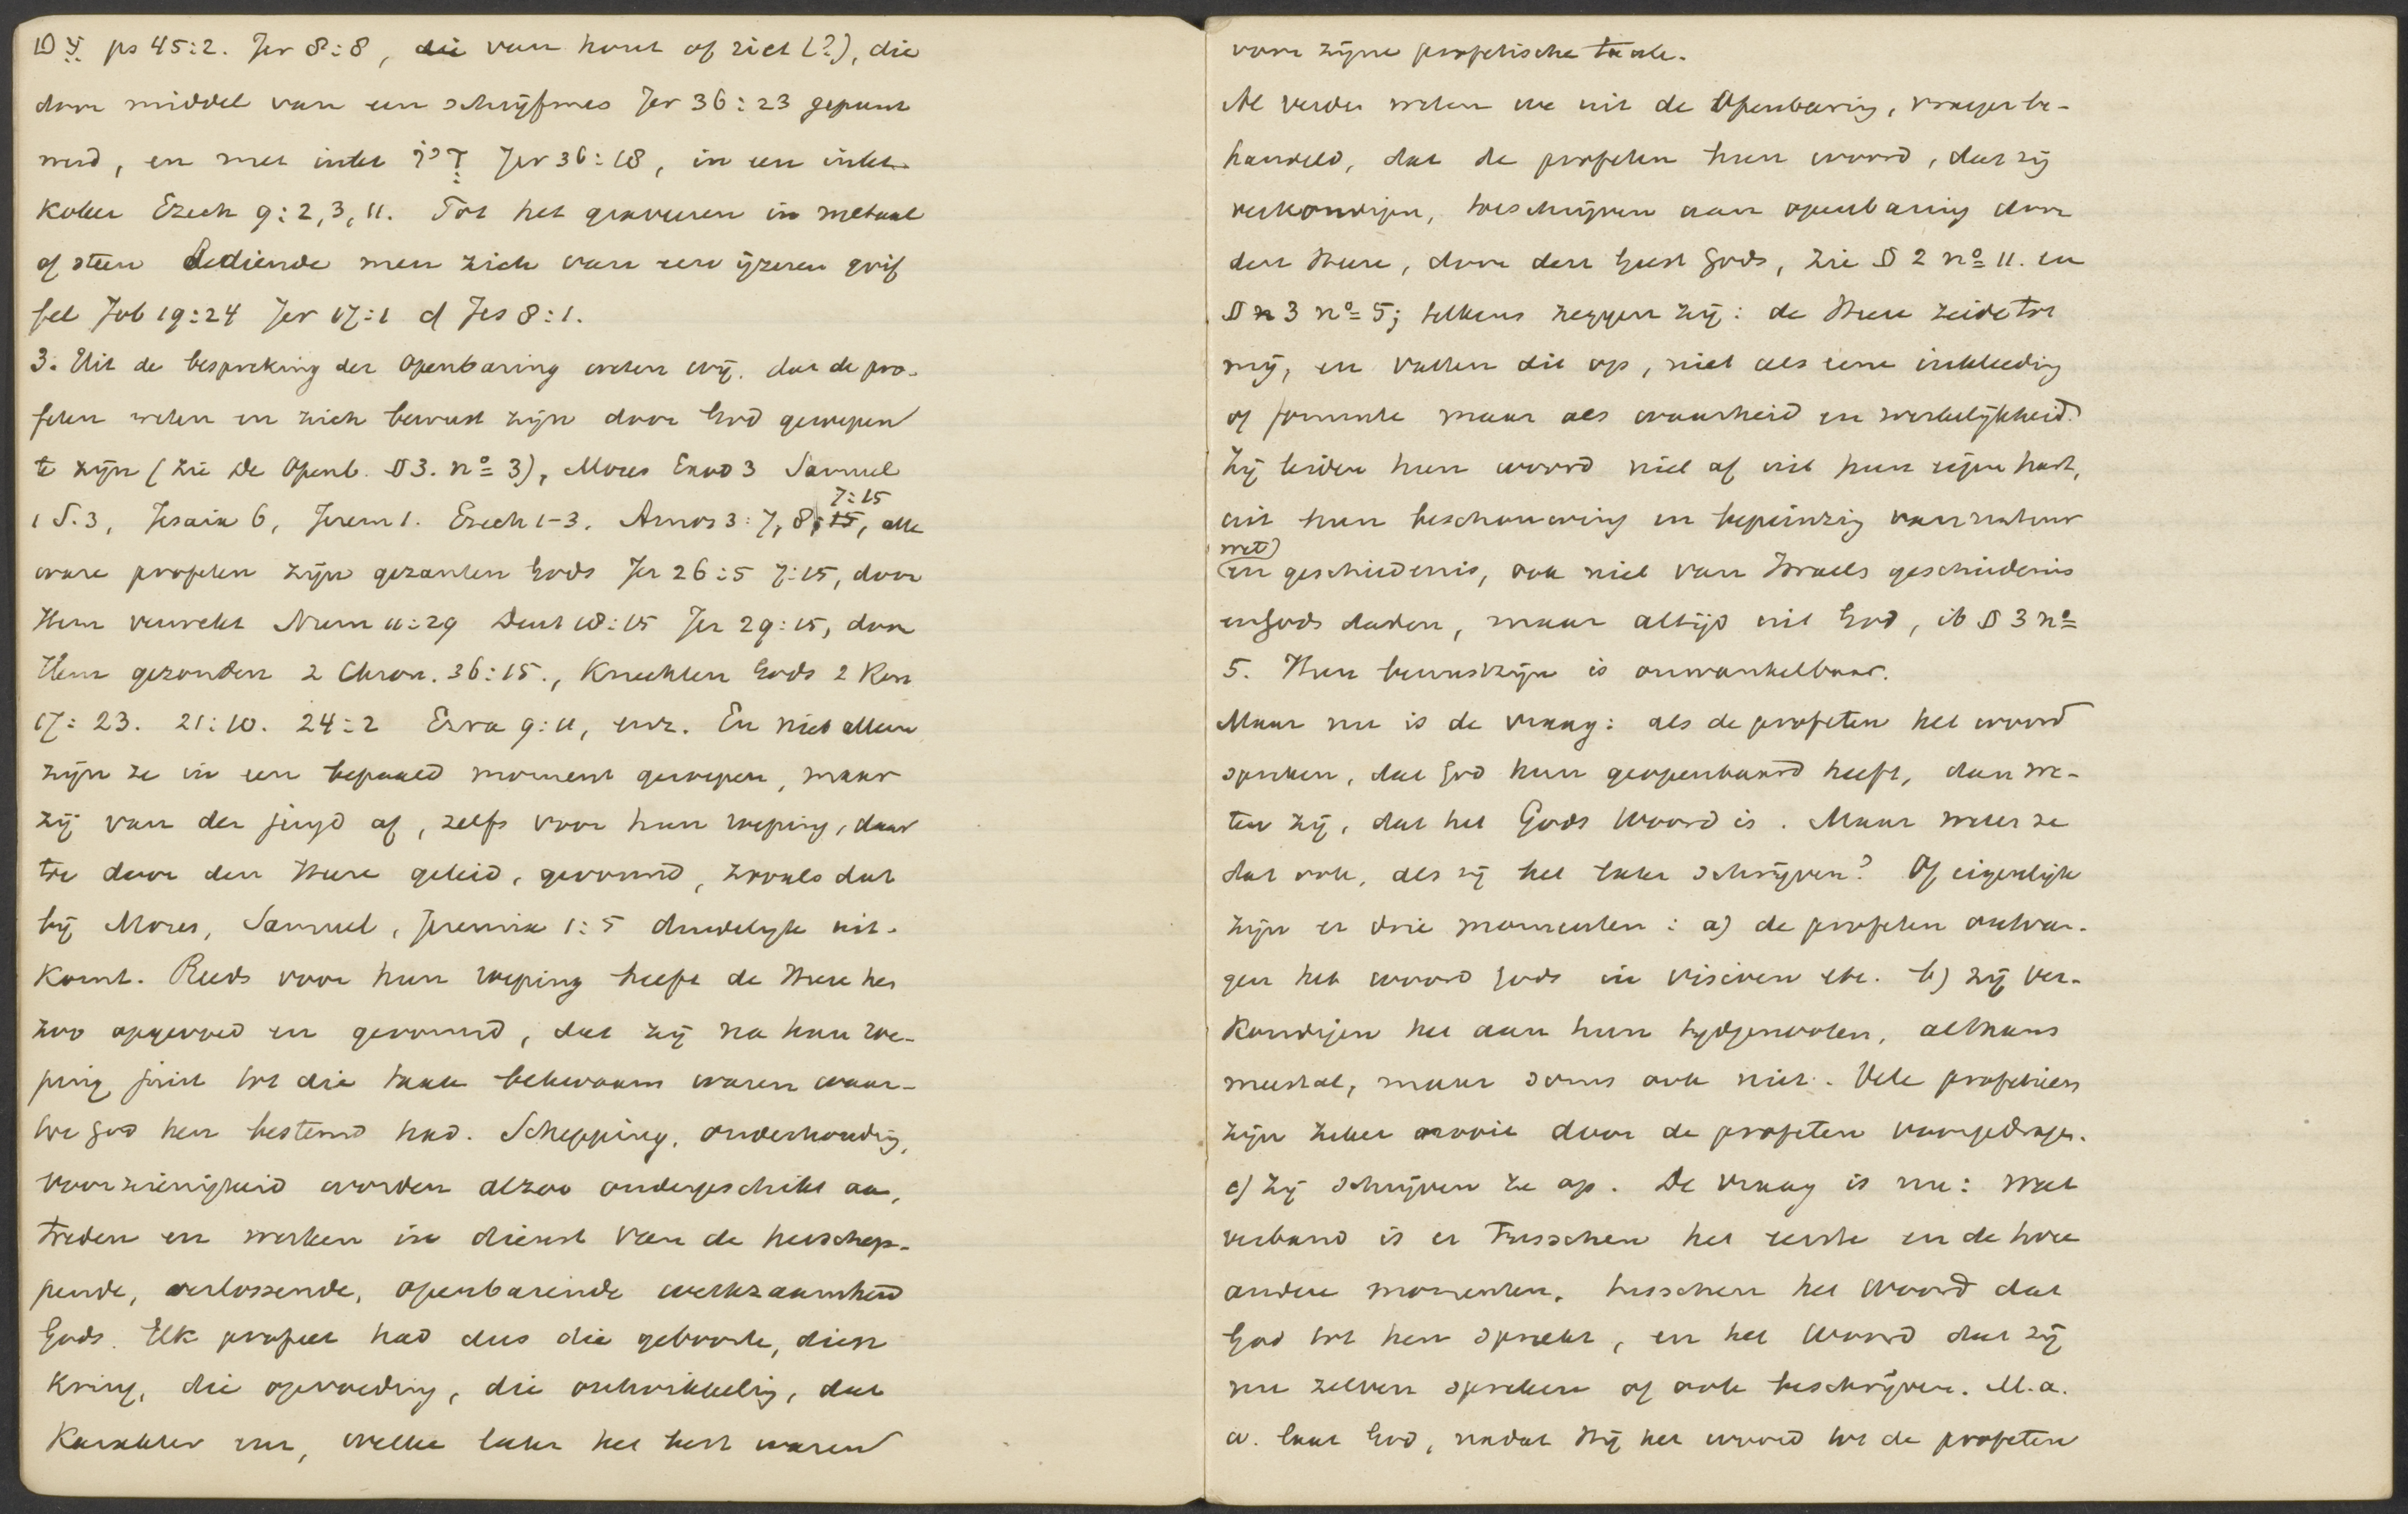 עֵט ps 45:2. Jer 8:8, die van hout of riet (?), die
door middel van een schrijfmes Jer 36:23 gepunt
werd, en met inkt דְּיוֹ Jer 36:18, in een inkt-
koker Ezech 9:2,3,11. Tot het graveeren in metaal
of steen bediende men zich van een ijzeren grif
fel Job 19:24 Jer 17:1 cf Jes 8:1.
3. Uit de bespreking der Openbaring weten wij. dat de pro-
feten weten en zich bewust zijn door God geroepen
te zijn (zie De Openb. § 3. no 3), Mozes Exod 3 Samuel
1 S.3, Jesaia 6, Jerem 1. Ezech 1-3. Amos 3:7,8; 7:15 15, alle
ware profeten zijn gezanten Gods Jer 26:5 7:25, door
Hem verwekt Num 11:29 Deut 18:15 Jer 29:15, door
Hem gezonden 2 Chron. 36:15., Knechten Gods 2 Kon
17:23. 21:10. 24:2 Ezra 9:11, enz. En niet alleen
zijn ze in een bepaald moment geroepen, maar
zij van der jeugd af, zelfs voor hun roeping, daar
toe door den Heere geleid, gevormd, zooals dat
bij Mozes, Samuel, Jeremia 1:5 duidelijk uit-
komt. Reeds voor hun roeping heeft de Heere hen
zoo opgevoed en gevormd, dat zij na hun roe-
ping juist tot die taak bekwaam waren waar-
toe God hen bestemd had. Schepping, onderhouding,
voorzienigheid worden alzoo ondergeschikt aan,
treden en werken in dienst van de herschep-
pende, verlossende, openbarende werkzaamheid
Gods. Elk profeet had dus die geboorte, dien
kring, die opvoeding, die ontwikkeling, dat
karakter enz, welke later het best waren
voor zijne profetische taak.
Al verder weten we uit de Openbaring, vroeger be-
handeld, dat de profeten hun woord, dat zij
verkondigen, toeschrijven aan openbaring door
den Heere, door den Geest Gods, zie § 2 no 11. en
§ 3 no 5; telkens zeggen zij: de Heere zeide tot
mij, en vatten dit op, niet als eene inkleeding
of formule maar als waarheid en werkelijkheid.
Zij leiden hun woord niet af uit hun eigen hart,
uit hun beschouwing en bepeinzing van natuur
wet)
(en geschiedenis, ook niet van Israels geschiedenis
en Gods daden, maar altijd uit God, ib § 3 no
5. Hun bewustzijn is onwankelbaar.
Maar nu is de vraag: als de profeten het woord
spreken, dat God hun geopenbaard heeft, dan we-
ten zij, dat het Gods Woord is. Maar weten ze
dat ook, als zij het later schrijven? Of eigenlijk
zijn er drie momenten: a) de profeten ontvan-
gen het woord Gods in visioen etc. b) zij ver-
kondigen het aan hun tijdgenooten, althans
meestal, maar soms ook niet. Vele profetieen
zijn zeker nooit door de profeten voorgedragen.
c) zij schrijven ze op. De vraag is nu: wat
verband is er tusschen het eerste en de twee
andere momenten, tusschen het Woord dat
God tot hen spreekt, en het Woord dat zij
nu zelven spreken of ook beschrijven. M.a.
w. laat God, nadat Hij het woord tot de profeten